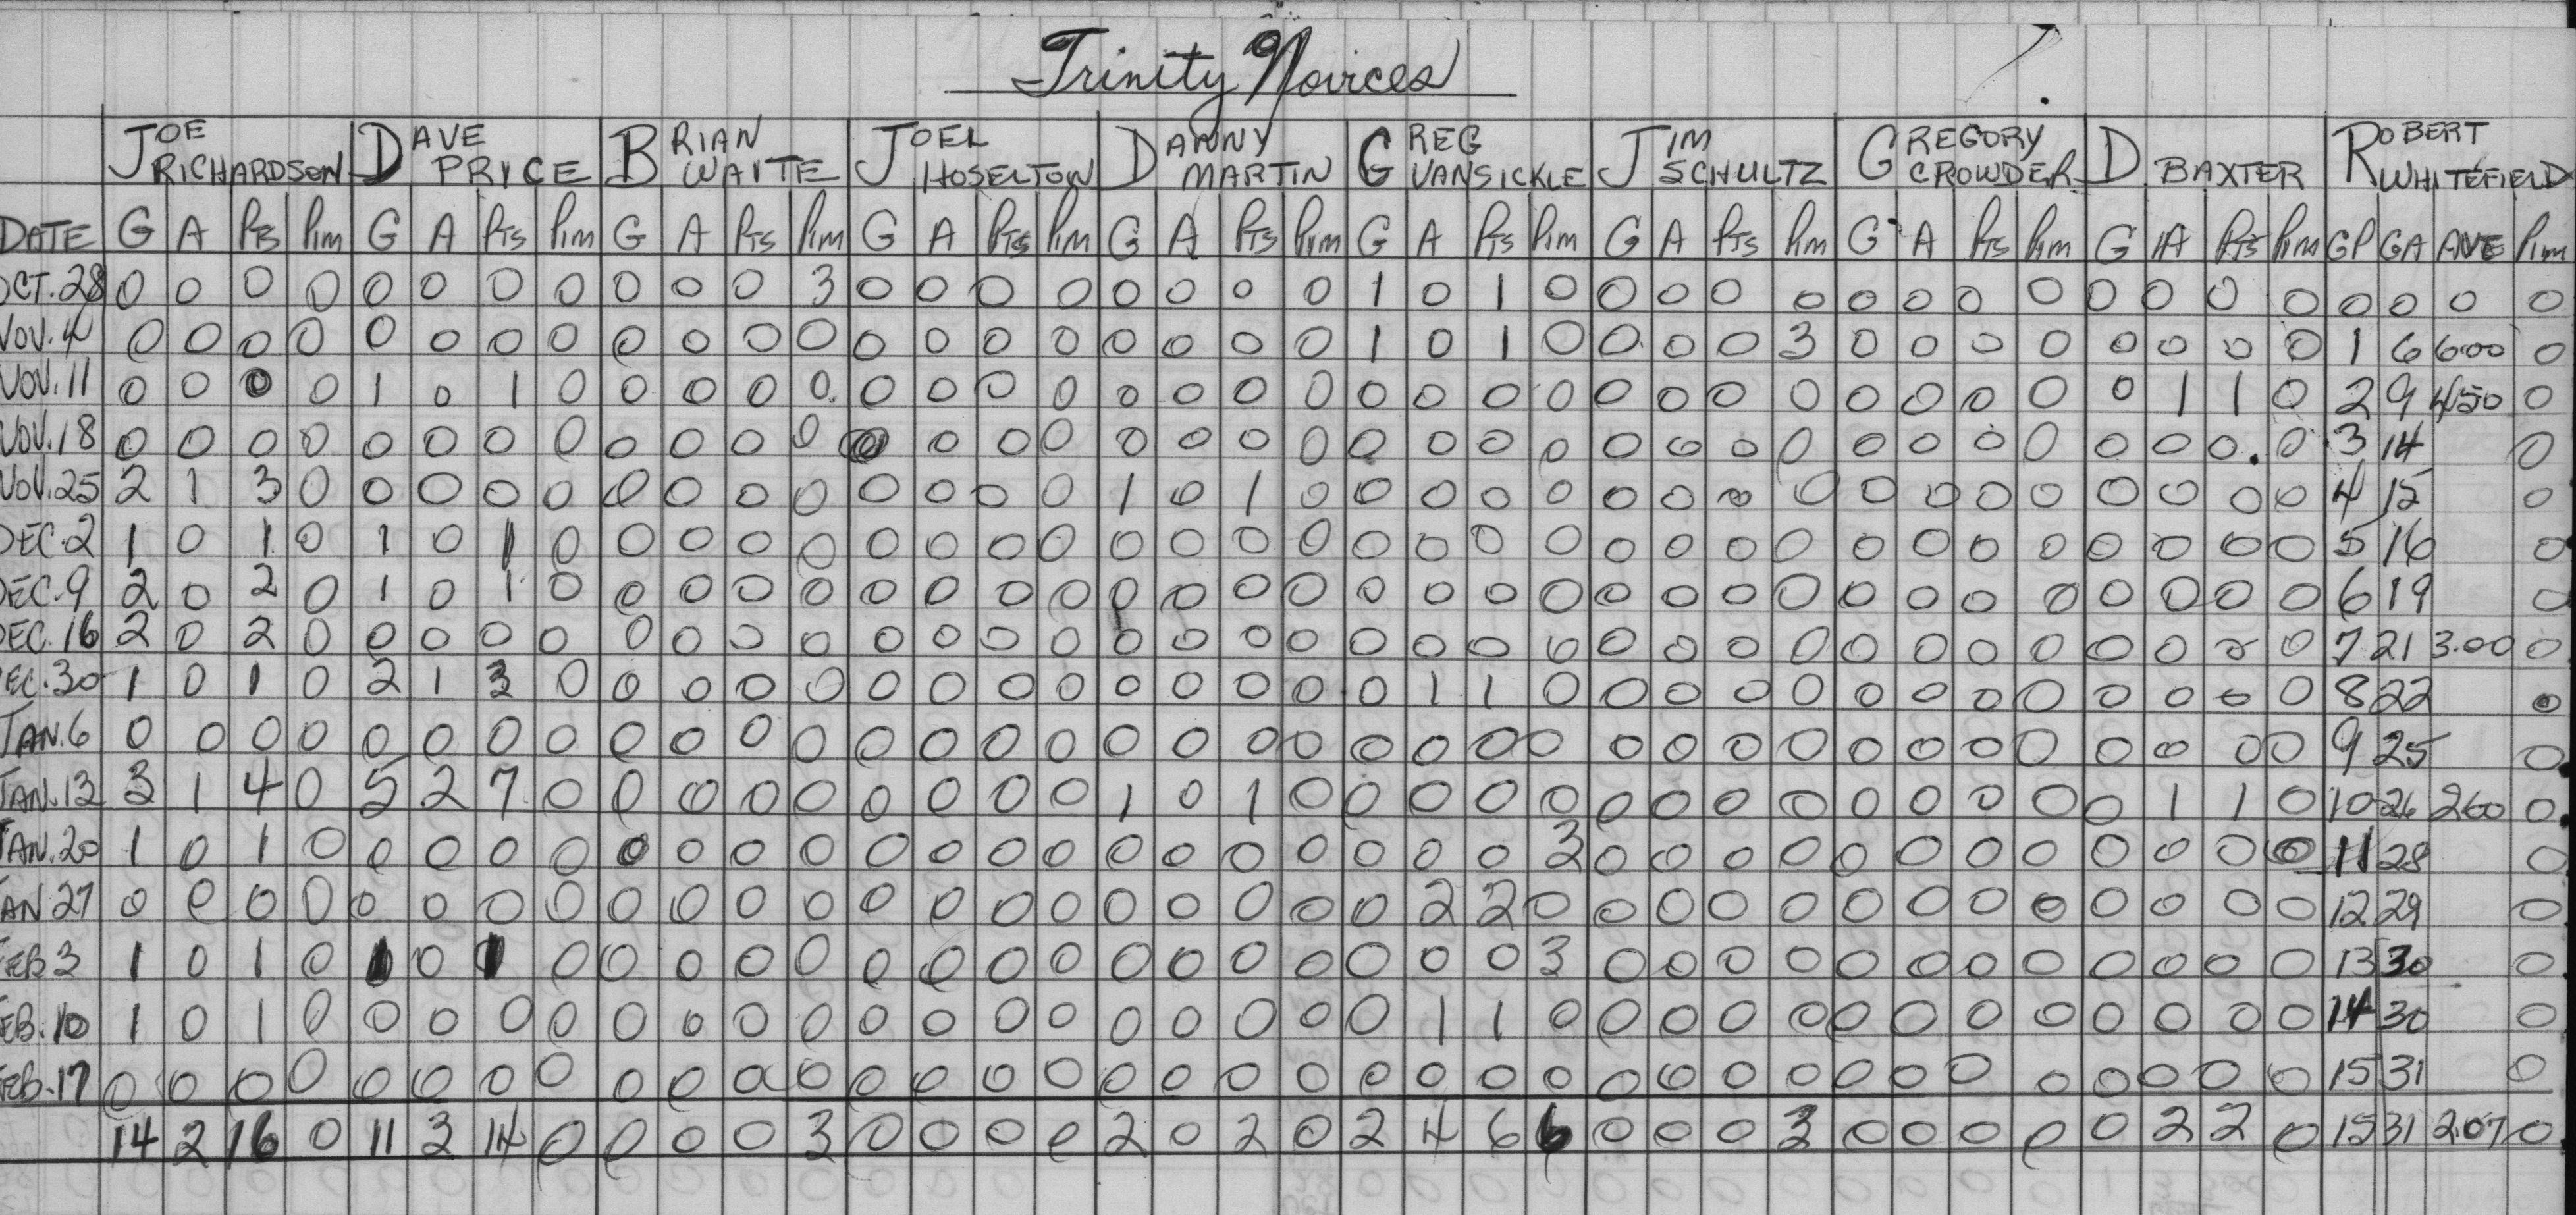 Trinity Novices
JOE RICHARDSON DAVE PRICE BRIAN WAITE JOEL HOSELTON DANNY MARTIN GREG VANSICKLE JIM SCHULTZ GREGORY CROWDER D BAXTER ROBERT WHITEFIELD
DATE G A Pts Pim G A Pts Pim G A Pts Pim G A Pts Pim G A Pts Pim G A Pts Pim G A Pts Pim G A Pts Pim G A Pts Pim GP GA AVE Pim
OCT.28 0 0 0 0 0 0 0 0 0 0 0 3 0 0 0 0 0 0 0 0 1 0 1 0 0 0 0 0 0 0 0 0 0 0 0 0 0 0 0 0
NOV.4 0 0 0 0 0 0 0 0 0 0 0 0 0 0 0 0 0 0 0 0 1 0 1 0 0 0 0 3 0 0 0 0 0 0 0 0 1 6 6.00 0
NOV.11 0 0 0 0 1 0 1 0 0 0 0 0 0 0 0 0 0 0 0 0 0 0 0 0 0 0 0 0 0 0 0 0 0 1 1 0 2 9 4.50 0
NOV.18 0 0 0 0 0 0 0 0 0 0 0 0 0 0 0 0 0 0 0 0 0 0 0 0 0 0 0 0 0 0 0 0 0 0 0 0 3 14 0
NOV.25 2 1 3 0 0 0 0 0 0 0 0 0 0 0 0 0 1 0 1 0 0 0 0 0 0 0 0 0 0 0 0 0 0 0 0 0 4 15 0
DEC.2 1 0 1 0 1 0 1 0 0 0 0 0 0 0 0 0 0 0 0 0 0 0 0 0 0 0 0 0 0 0 0 0 0 0 0 0 5 16 0
DEC.9 2 0 2 0 1 0 1 0 0 0 0 0 0 0 0 0 0 0 0 0 0 0 0 0 0 0 0 0 0 0 0 0 0 0 0 0 6 19 0
DEC.16 2 0 2 0 0 0 0 0 0 0 0 0 0 0 0 0 0 0 0 0 0 0 0 0 0 0 0 0 0 0 0 0 0 0 0 0 7 21 3.00 0
DEC.30 1 0 1 0 2 1 3 0 0 0 0 0 0 0 0 0 0 0 0 0 0 1 1 0 0 0 0 0 0 0 0 0 0 0 0 0 8 22 0
JAN.6 0 0 0 0 0 0 0 0 0 0 0 0 0 0 0 0 0 0 0 0 0 0 0 0 0 0 0 0 0 0 0 0 0 0 0 0 9 25 0
JAN.13 3 1 4 0 5 2 7 0 0 0 0 0 0 0 0 0 1 0 1 0 0 0 0 0 0 0 0 0 0 0 0 0 0 1 1 0 10 26 260 0
JAN.20 1 0 1 0 0 0 0 0 0 0 0 0 0 0 0 0 0 0 0 0 0 0 0 3 0 0 0 0 0 0 0 0 0 0 0 0 11 28 0
JAN 27 0 0 0 0 0 0 0 0 0 0 0 0 0 0 0 0 0 0 0 0 0 2 2 0 0 0 0 0 0 0 0 0 0 0 0 0 12 29 0
FEB 3 1 0 1 0 1 0 1 0 0 0 0 0 0 0 0 0 0 0 0 0 0 0 0 3 0 0 0 0 0 0 0 0 0 0 0 0 13 30 0
FEB.10 1 0 1 0 0 0 0 0 0 0 0 0 0 0 0 0 0 0 0 0 0 1 1 0 0 0 0 0 0 0 0 0 0 0 0 0 14 30 0
FEB.17 0 0 0 0 0 0 0 0 0 0 0 0 0 0 0 0 0 0 0 0 0 0 0 0 0 0 0 0 0 0 0 0 0 0 0 0 15 31 0
14 2 16 0 11 3 14 0 0 0 0 3 0 0 0 0 2 0 2 0 2 4 6 6 0 0 0 3 0 0 0 0 0 2 2 0 15 31 2.07 0